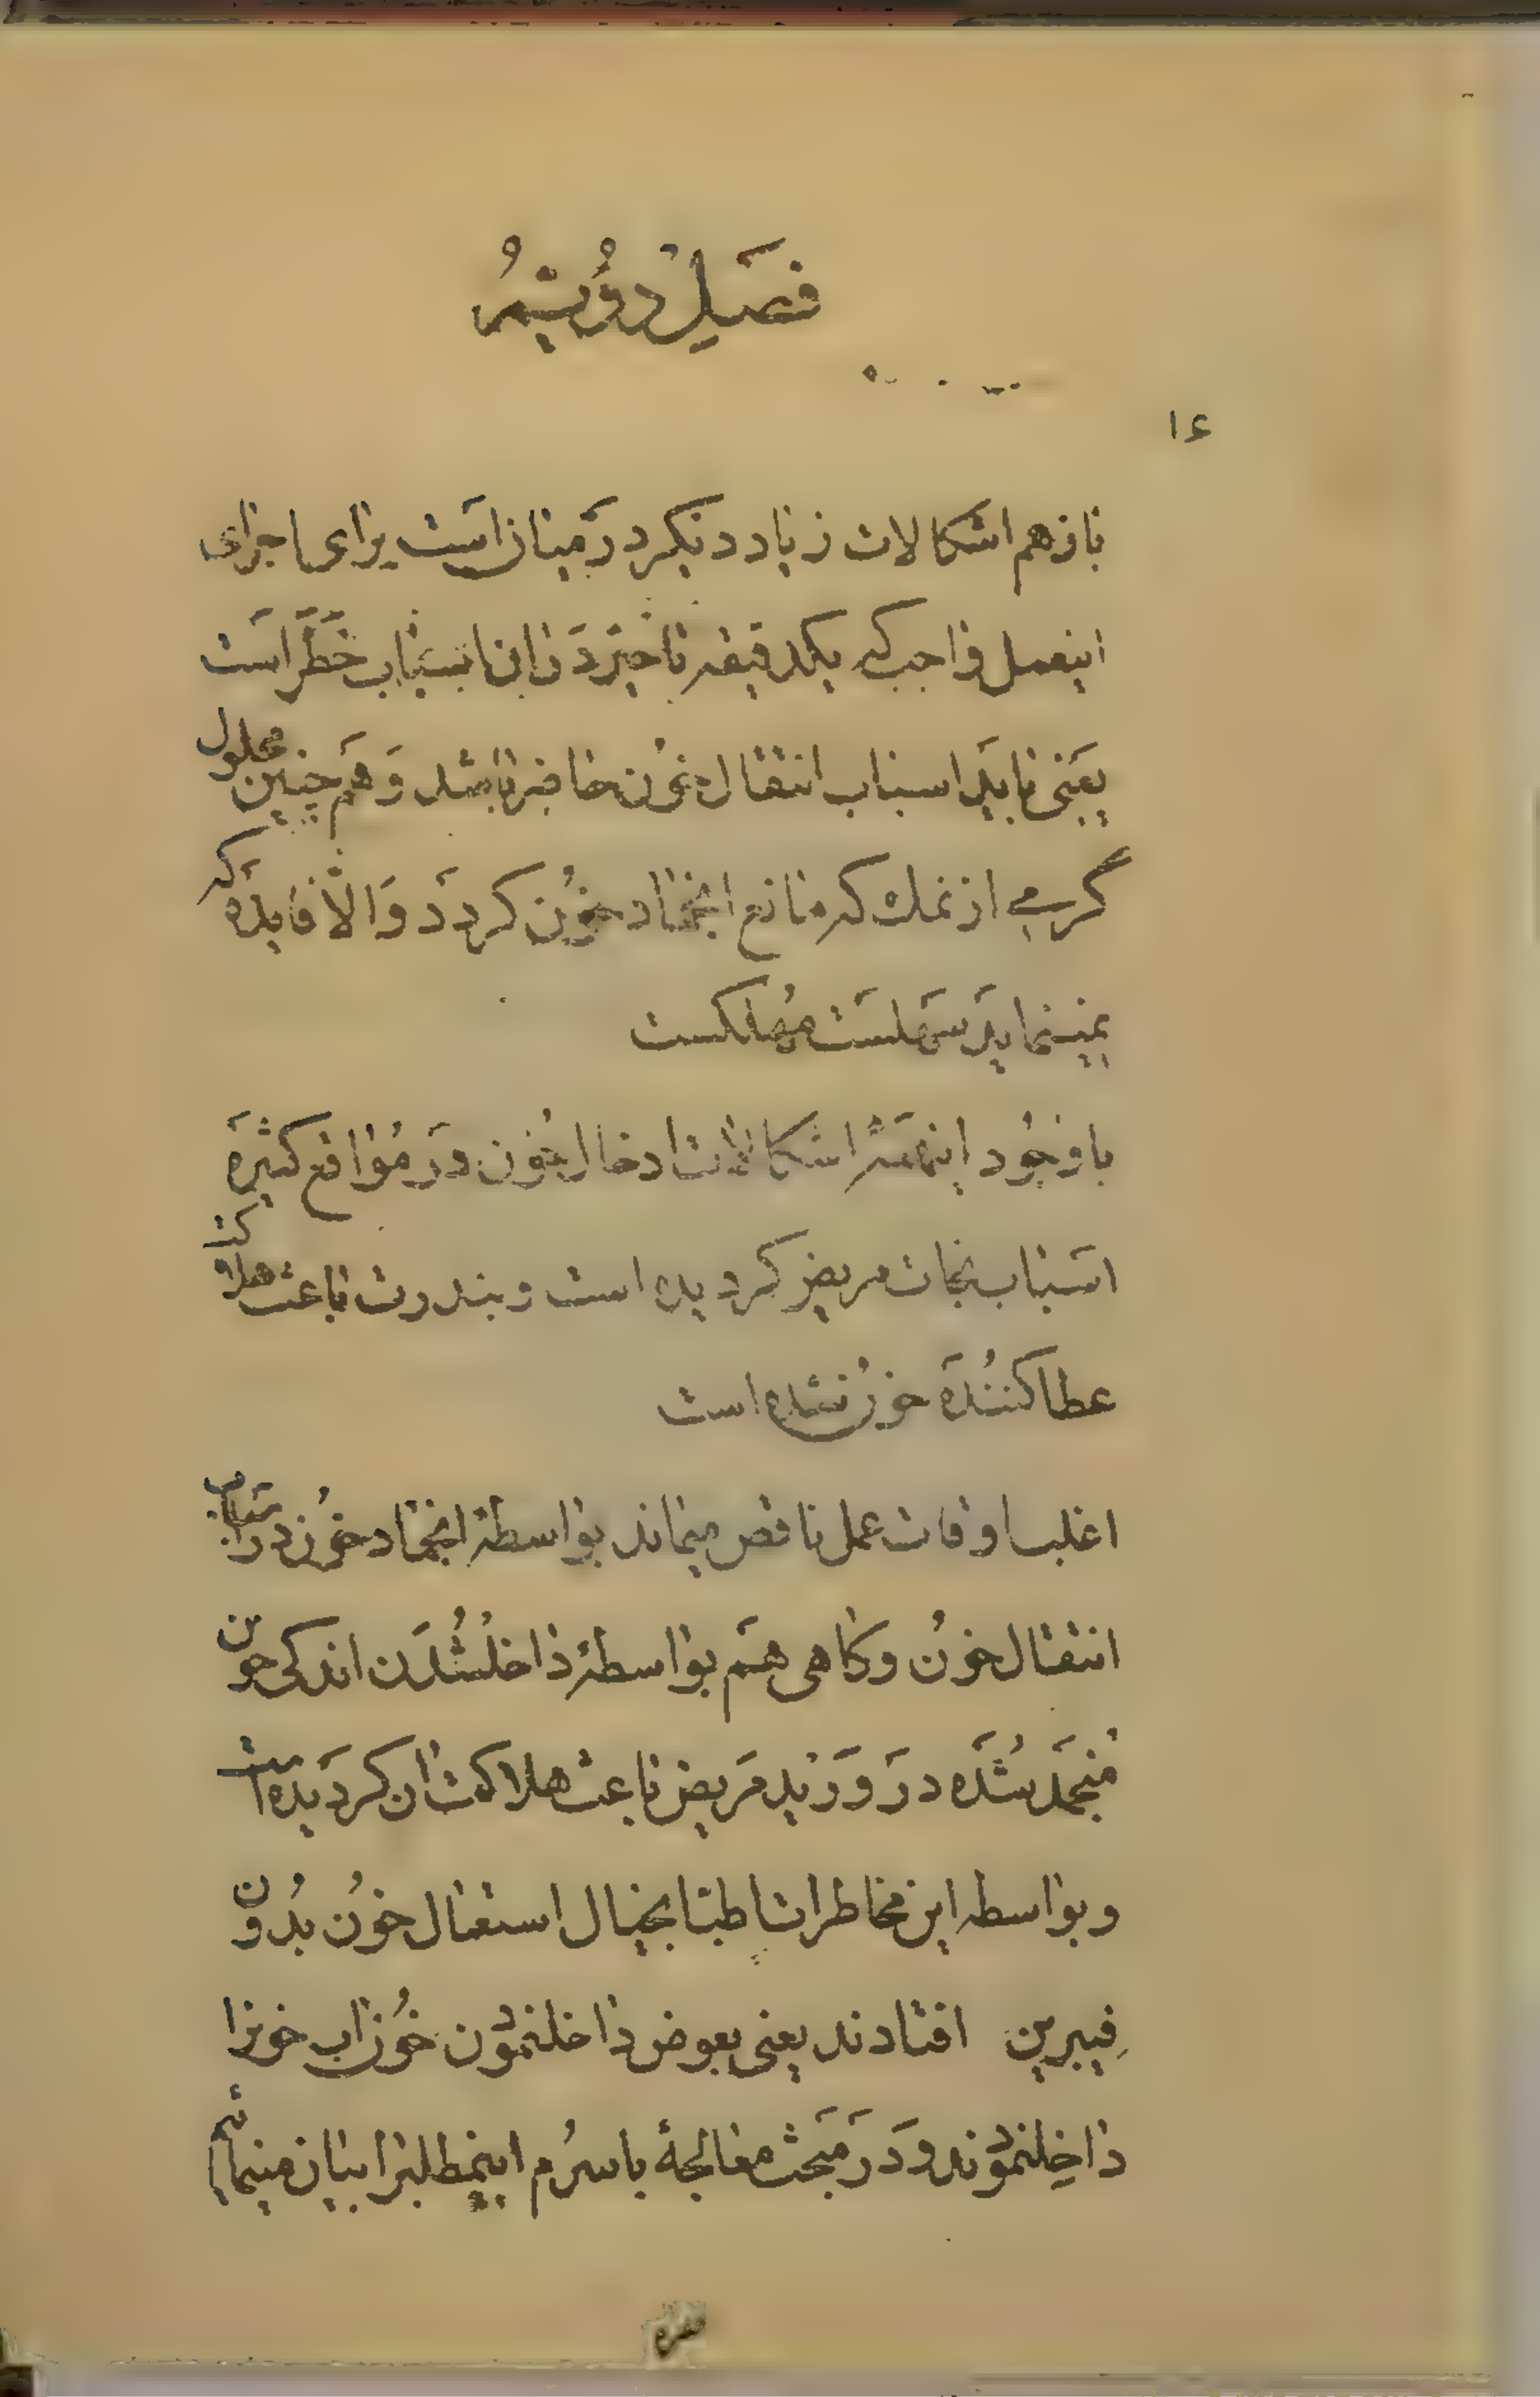 فَصْلِ دُوُیُّمْ
۱۶
باز هم اشکالات زیاد دیکر در میان است برای اجرای
اینعمل واجب که یکدقیقه تاخیر در ان اسباب خطر است
یعنی باید اسباب انتقال خون حاضر باشد و هم چنین محلول
کرمی از نمک که مانع انجماد خون کردد والا فایده که
نمینماید سهلست مهلکست
با وجود اینهمه اشکالات ادخال خون در مواقع کثیره
اسباب نجات مریض کردیده است و بندرت باعث هلاکت
عطا کننده خون شده است
اغلب اوقات عمل ناقص میماند بواسطهٔ انجماد خون در اسباب
انتقال خون و کاهی هم بواسطهٔ داخلشدن اندکی خون
منجمد شده در ورید مریض باعث هلاکت ان کردیده است
و بواسطه این مخاطرات اطبا بخیال استعمال خون بدون
فیبرین افتادند یعنی بعوض داخلنمودن خون اب خونرا
داخلنمودند و در مبحث معالجهٔ با سرم اینمطلبرا بیان مینمائیم